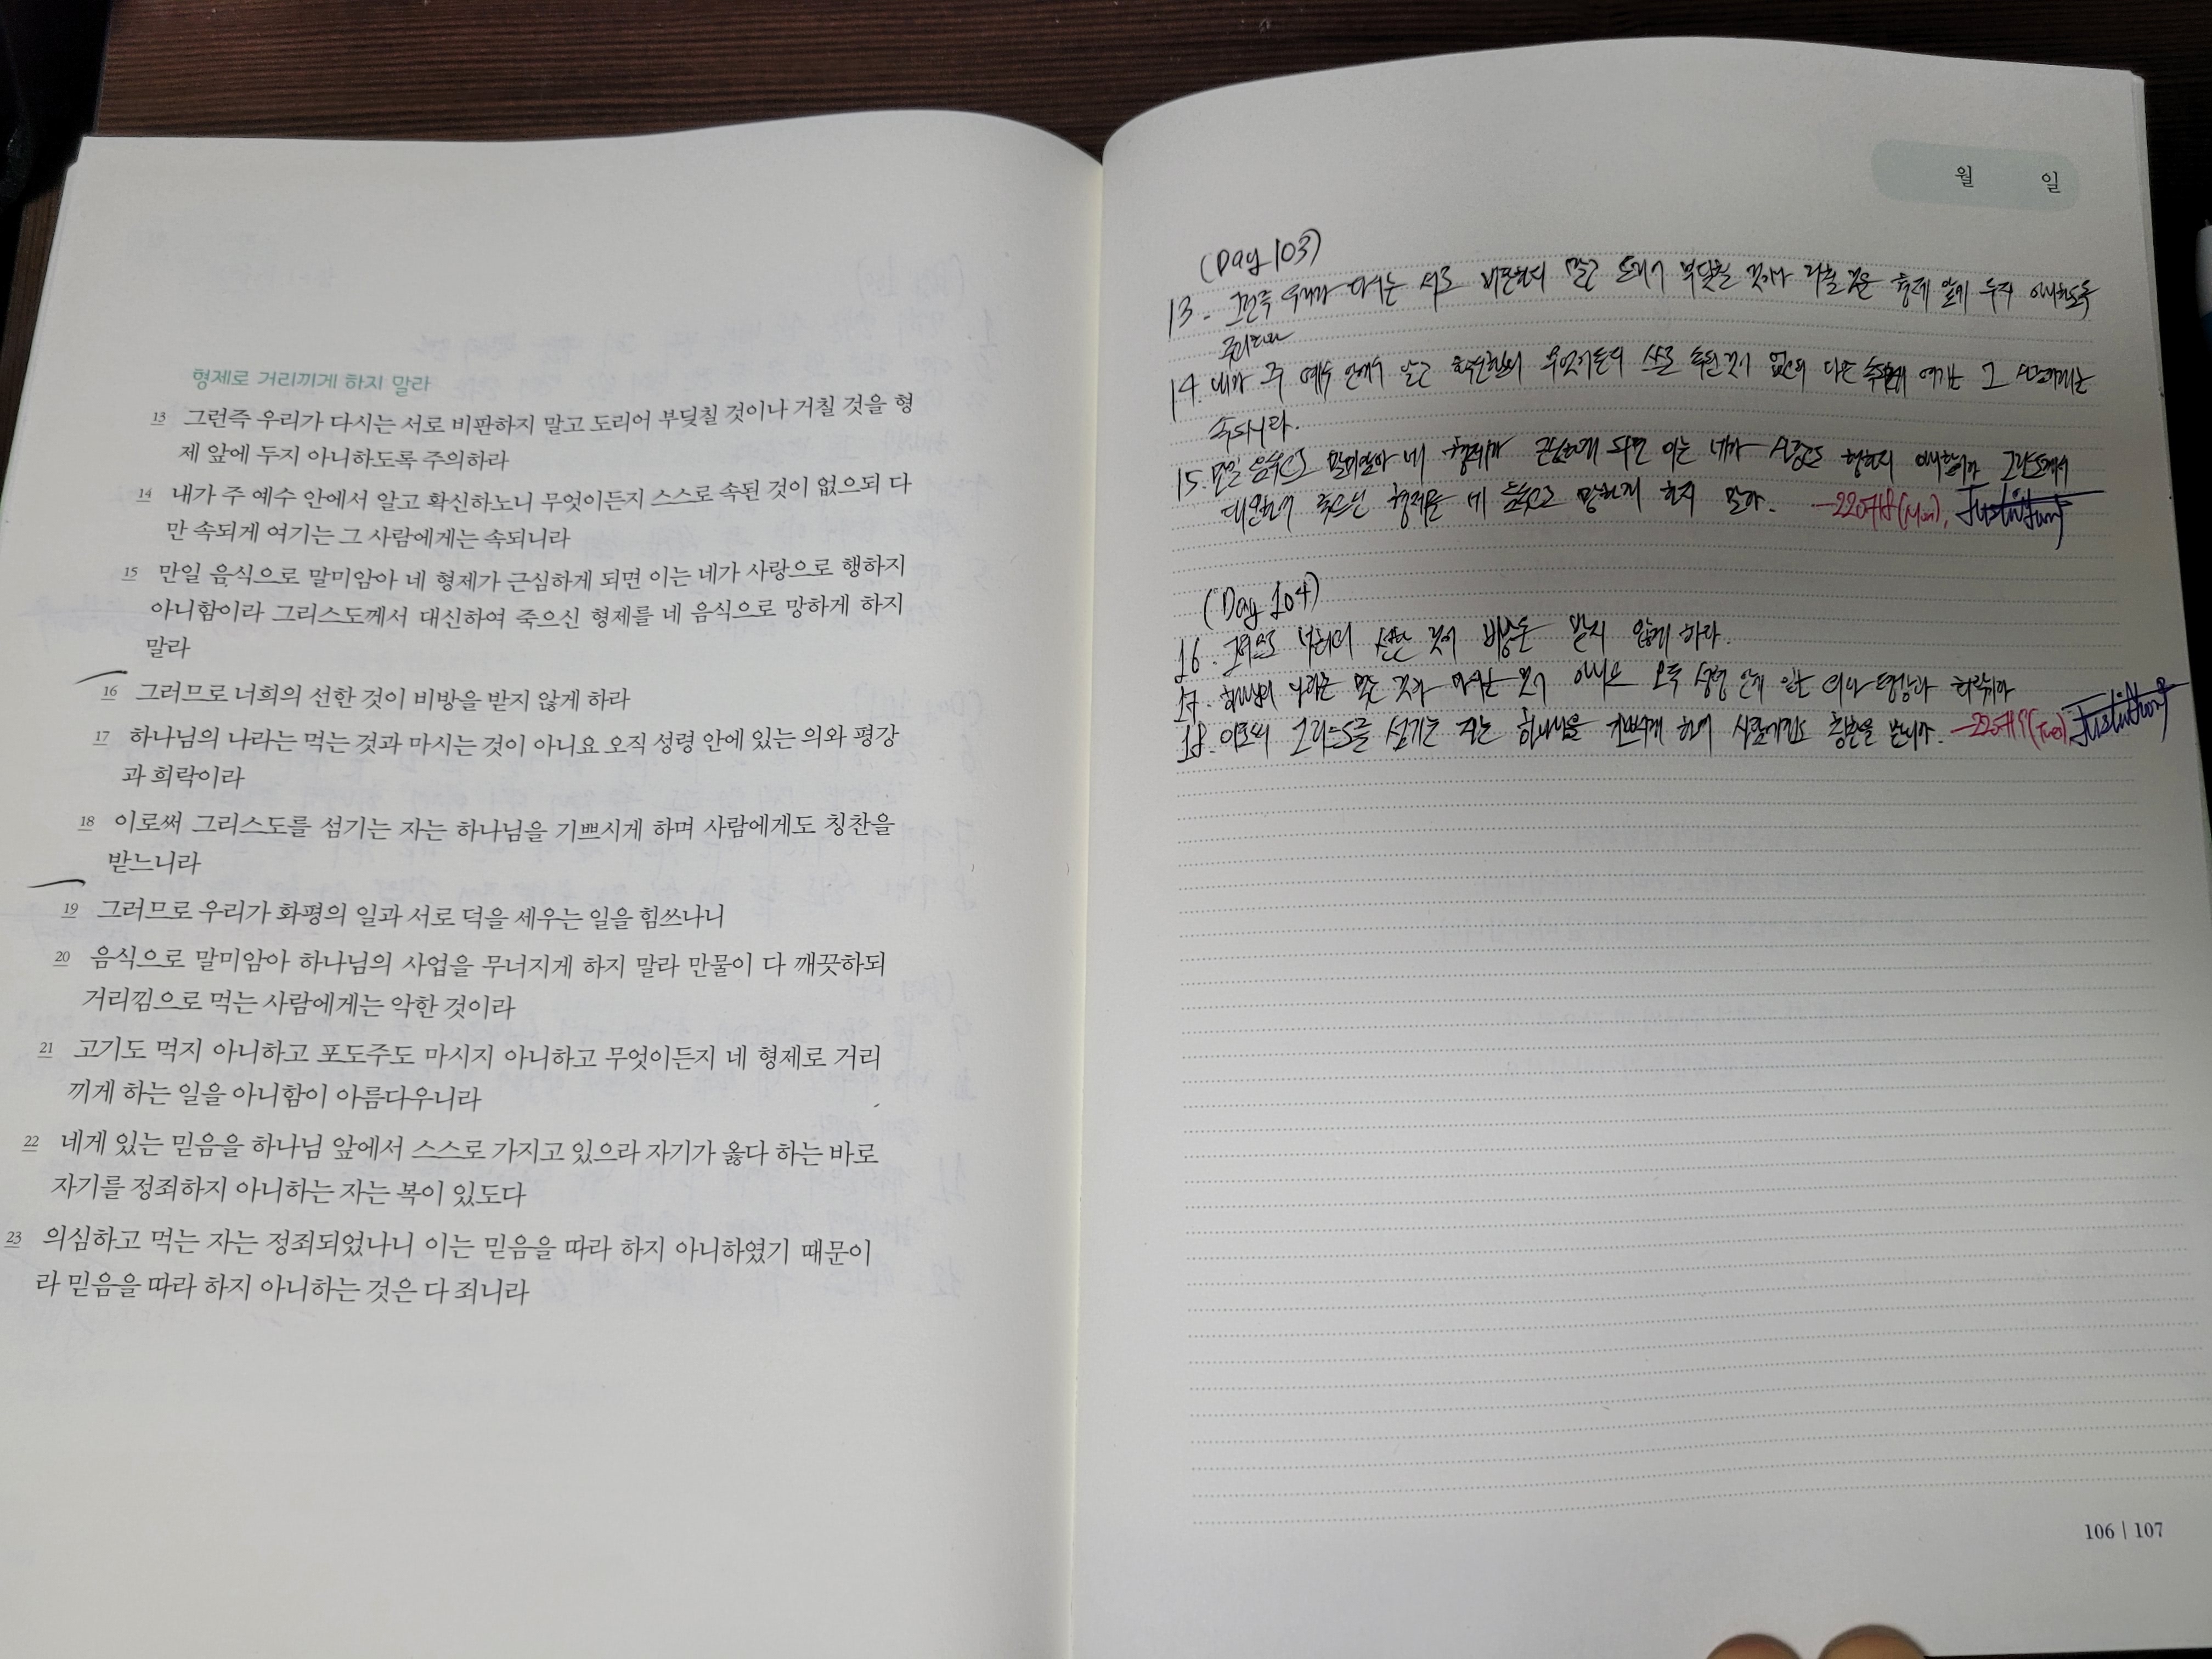 형제로 거리끼게 하지 말라
13 그런즉 우리가 다시는 서로 비판하지 말고 도리어 부딪칠 것이나 거칠 것을 형
제 앞에 두지 아니하도록 주의하라
14 내가 주 예수 안에서 알고 확신하노니 무엇이든지 스스로 속된 것이 없으되 다
만 속되게 여기는 그 사람에게는 속되니라
15 만일 음식으로 말미암아 네 형제가 근심하게 되면 이는 네가 사랑으로 행하지
아니함이라 그리스도께서 대신하여 죽으신 형제를 네 음식으로 망하게 하지
말라
16 그러므로 너희의 선한 것이 비방을 받지 않게 하라
17 하나님의 나라는 먹는 것과 마시는 것이 아니요 오직 성령 안에 있는 의와 평강
과 희락이라
18 이로써 그리스도를 섬기는 자는 하나님을 기쁘시게 하며 사람에게도 칭찬을
받느니라
19 그러므로 우리가 화평의 일과 서로 덕을 세우는 일을 힘쓰나니
20 음식으로 말미암아 하나님의 사업을 무너지게 하지 말라 만물이 다 깨끗하되
거리낌으로 먹는 사람에게는 악한 것이라
21 고기도 먹지 아니하고 포도주도 마시지 아니하고 무엇이든지 네 형제로 거리
끼게 하는 일을 아니함이 아름다우니라
22 네게 있는 믿음을 하나님 앞에서 스스로 가지고 있으라 자기가 옳다 하는 바로
자기를 정죄하지 아니하는 자는 복이 있도다
23 의심하고 먹는 자는 정죄되었나니 이는 믿음을 따라 하지 아니하였기 때문이
라 믿음을 따라 하지 아니하는 것은 다 죄니라
월 일
(Day 103)
13. 그런즉 우리가 다시는 서로 비판하지 말고 도리어 부딪칠 것이나 거칠 것을 형제 앞에 두지 아니하도록
14. 내가 주 예수 안에서 알고 확신하노니 무엇이든지 스스로 속된 것이 없으되 다만 속되게 여기는 그 사람에게는
속되니라.
15. 만일 음식으로 말미암아 네 형제가 근심하게 되면 이는 네가 사랑으로 행하지 아니함이라 그리스도께서
대신하여 죽으신 형제를 네 음식으로 망하게 하지 말라.
(Day 104)
16. 그러므로 너희의 선한 것이 비방을 받지 않게 하라.
17. 하나님의 나라는 먹는 것과 마시는 것이 아니요 오직 성령 안에 있는 의와 평강과 희락이라
18. 이로써 그리스도를 섬기는 자는 하나님을 기쁘시게 하며 사람에게도 칭찬을 받느니라.
106 | 107